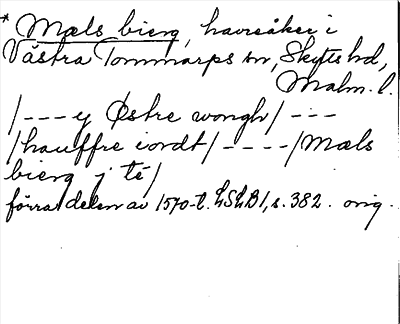 * Mæls bierg, havreåker i
Västra Tommarps sn, Skytts hd,
Malm. l.
/---y Østre wongh/---
/hauffre iordt/----/Mæls
bierg j té/
förra delen av 1570-t. LSLB 1, s. 382. orig.